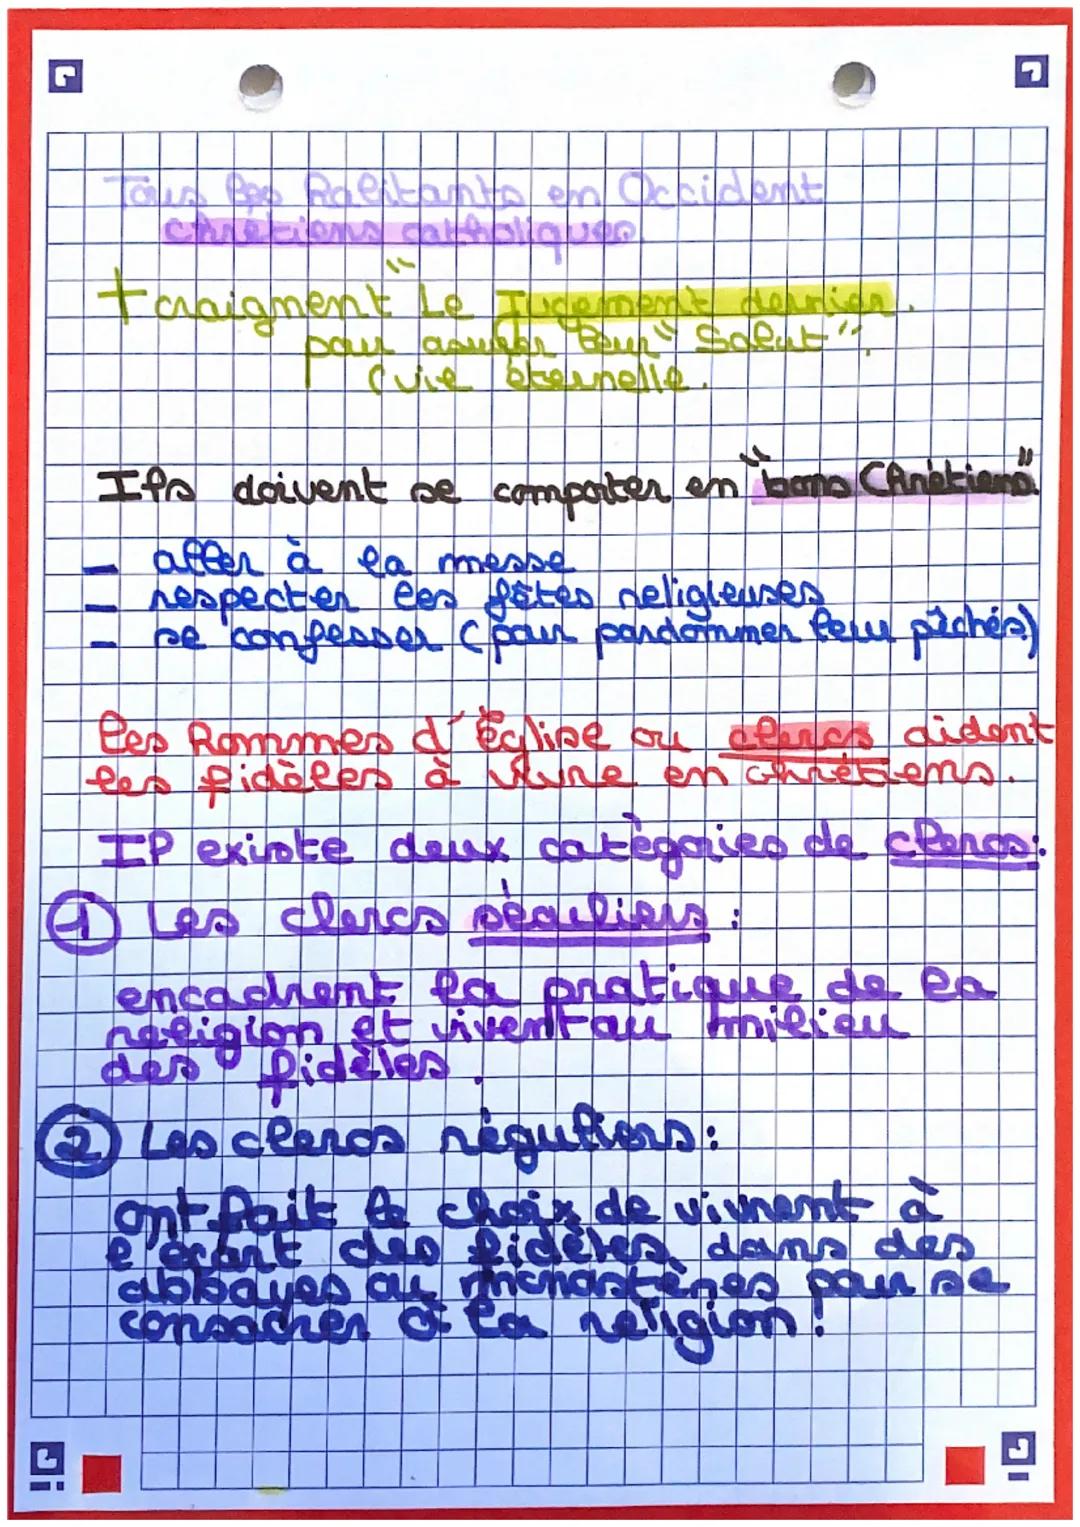 Tous les habitants en Occident
chrétiens catholiques.
+ craignent "Le Jugement dernier.
pour assurer leur "Salut".
(vie éternelle.
Ils doivent se comporter en "bons Chrétiens".
- aller à la messe
- respecter les fêtes religieuses
- se confesser (pour pardonner leur pêchés)
les hommes d'Église ou clercs aident
les fidèles à vivre en chrétiens.
Il existe deux catégories de clercs:
① Les clercs séculiers:
encadrent la pratique de la
religion et vivent au milieu
des fidèles.
② Les clercs réguliers:
ont fait le choix de vivrent à
l'écart des fidèles dans des
abbayes ou monastères pour se
consacrer à la religion!